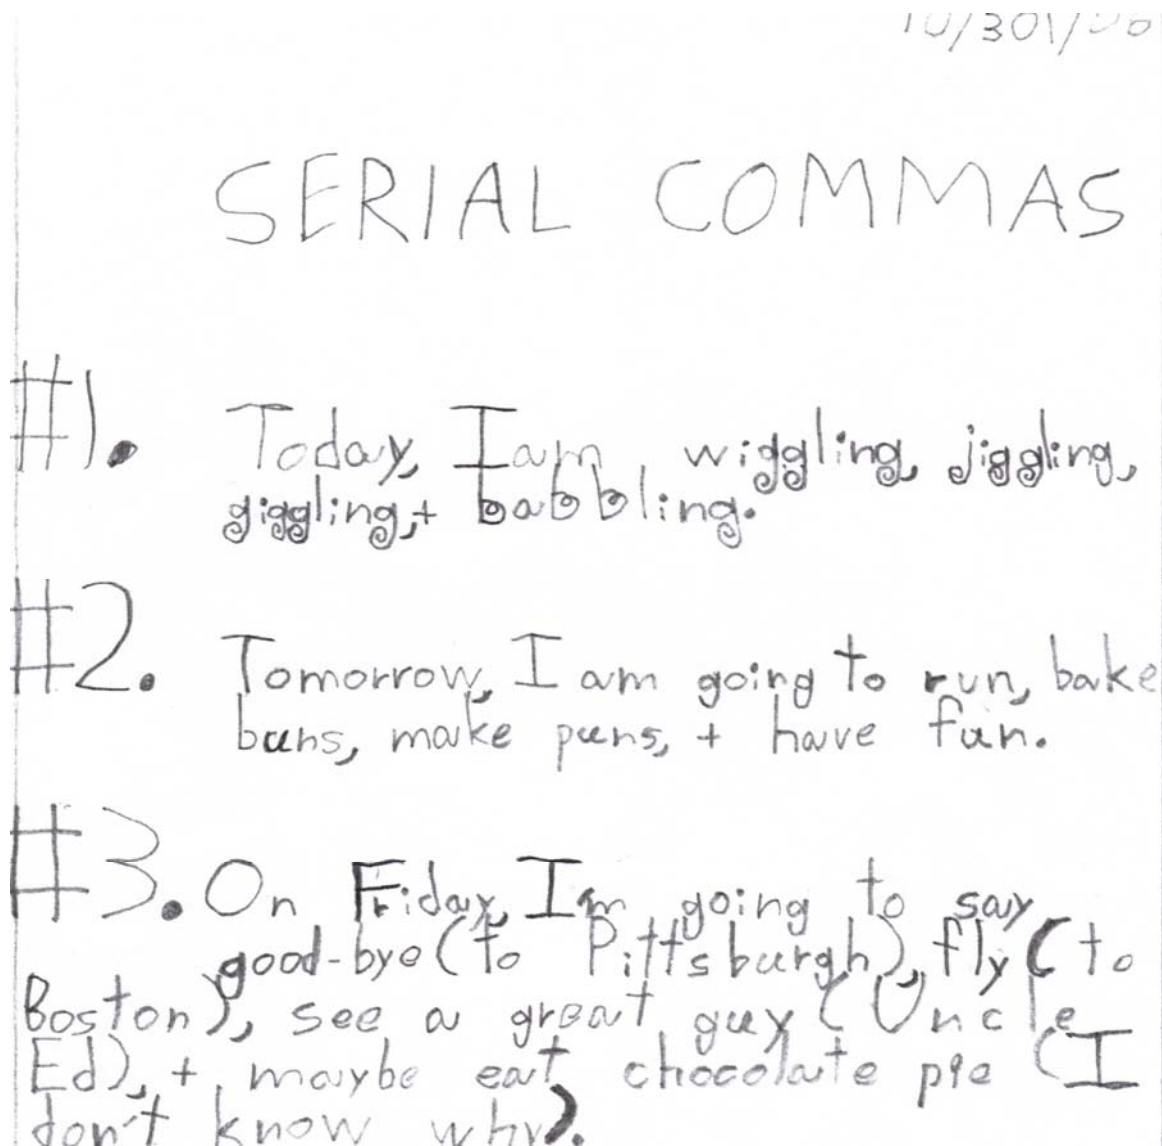 SERIAL COMMAS
#1. Today, I am wiggling, jiggling,
giggling, + babbling.
#2. Tomorrow, I am going to run, bake
buns, make puns, + have fun.
#3. On Friday, I'm going to say
good-bye (to Pittsburgh), fly (to
Boston), see a great guy (Uncle
Ed), + maybe eat chocolate pie (I
don't know why).